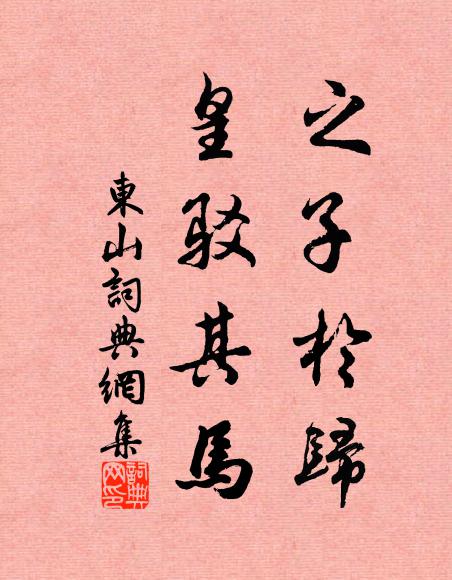 之子於歸
皇駁其馬
東山詞典網集
詞典网印